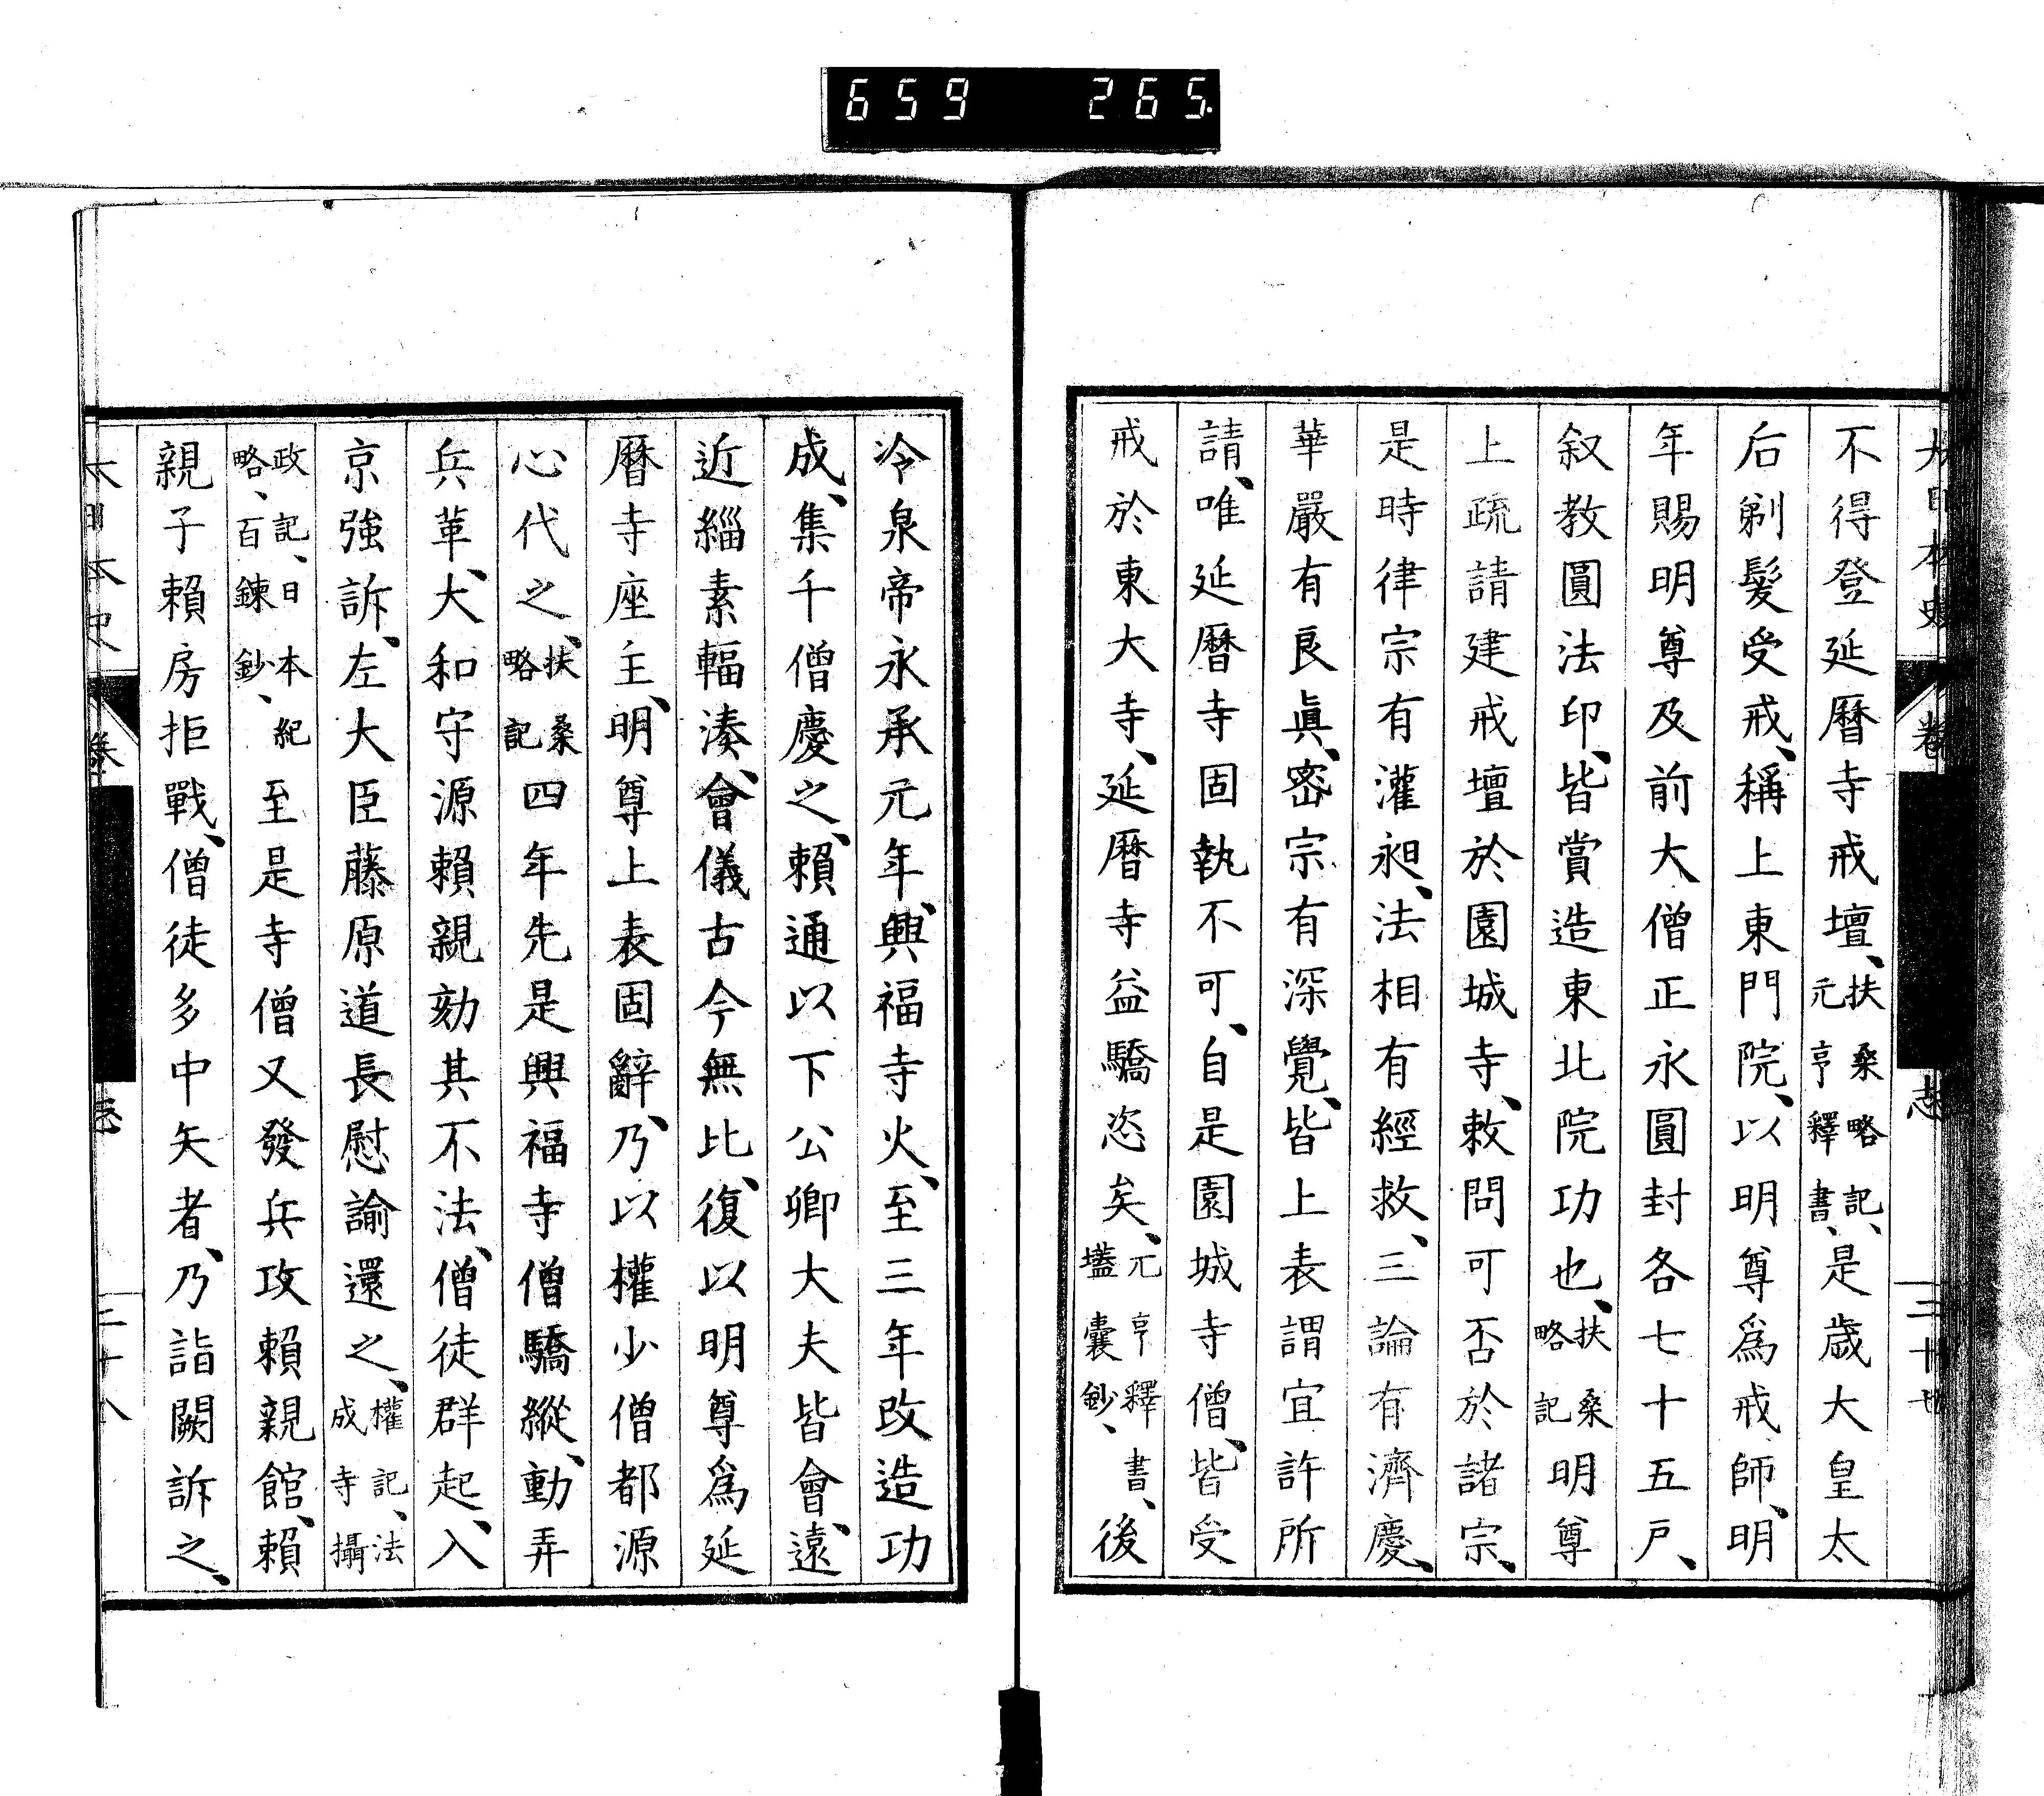 659 265.
不得登延曆寺戒壇、扶桑略記、元亨釋書、是歲大皇太
后剃髮受戒、稱上東門院、以明尊爲戒師、明
年賜明尊及前大僧正永圓封各七十五戶、
叙教圓法印、皆賞造東北院功也、扶桑略記明尊
上疏請建戒壇於園城寺、敕問可否於諸宗、
是時律宗有灌昶、法相有經救、三論有濟慶、
華嚴有良眞、密宗有深覺、皆上表謂宜許所
請、唯延曆寺固執不可、自是園城寺僧、皆受
戒於東大寺、延曆寺益驕恣矣、元亨釋書、壒囊鈔、後
冷泉帝永承元年、興福寺火、至三年改造功
成、集千僧慶之、賴通以下公卿大夫皆會、遠
近緇素輻湊、會儀古今無比、復以明尊爲延
曆寺座主、明尊上表固辭、乃以權少僧都源
心代之、扶桑略記四年先是興福寺僧驕縱、動弄
兵革、大和守源賴親劾其不法、僧徒群起、入
京強訴、左大臣藤原道長慰諭還之、權記、法成寺攝
政記、日本紀略、百鍊鈔、至是寺僧又發兵攻賴親館、賴
親子賴房拒戰、僧徒多中矢者、乃詣闕訴之、